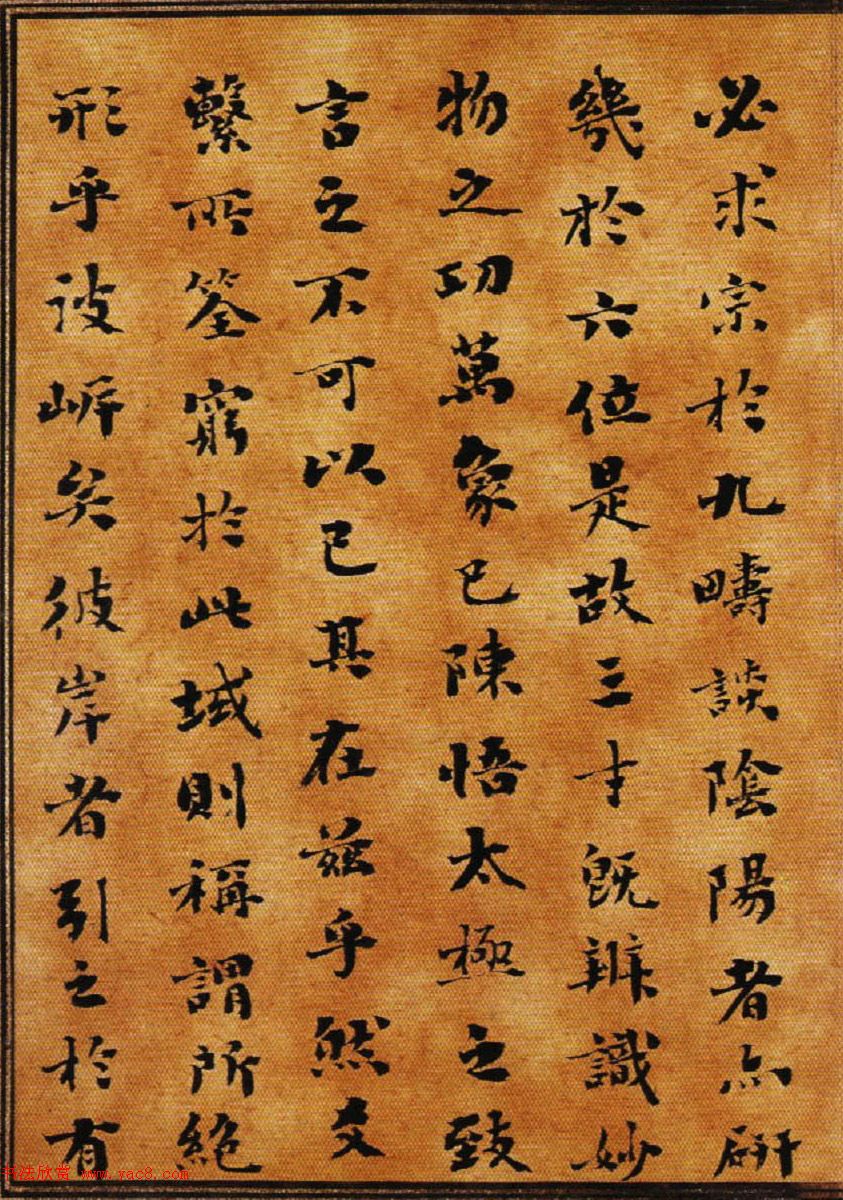 必求宗於九疇談陰陽者亦研
幾於六位是故三才既辨識妙
物之功萬象已陳悟太極之致
言之不可以已其在茲乎然爻
繫所筌窮於此域則稱謂所絕
形乎彼岸矣彼岸者引之於有
书法欣赏 www.yac8.com